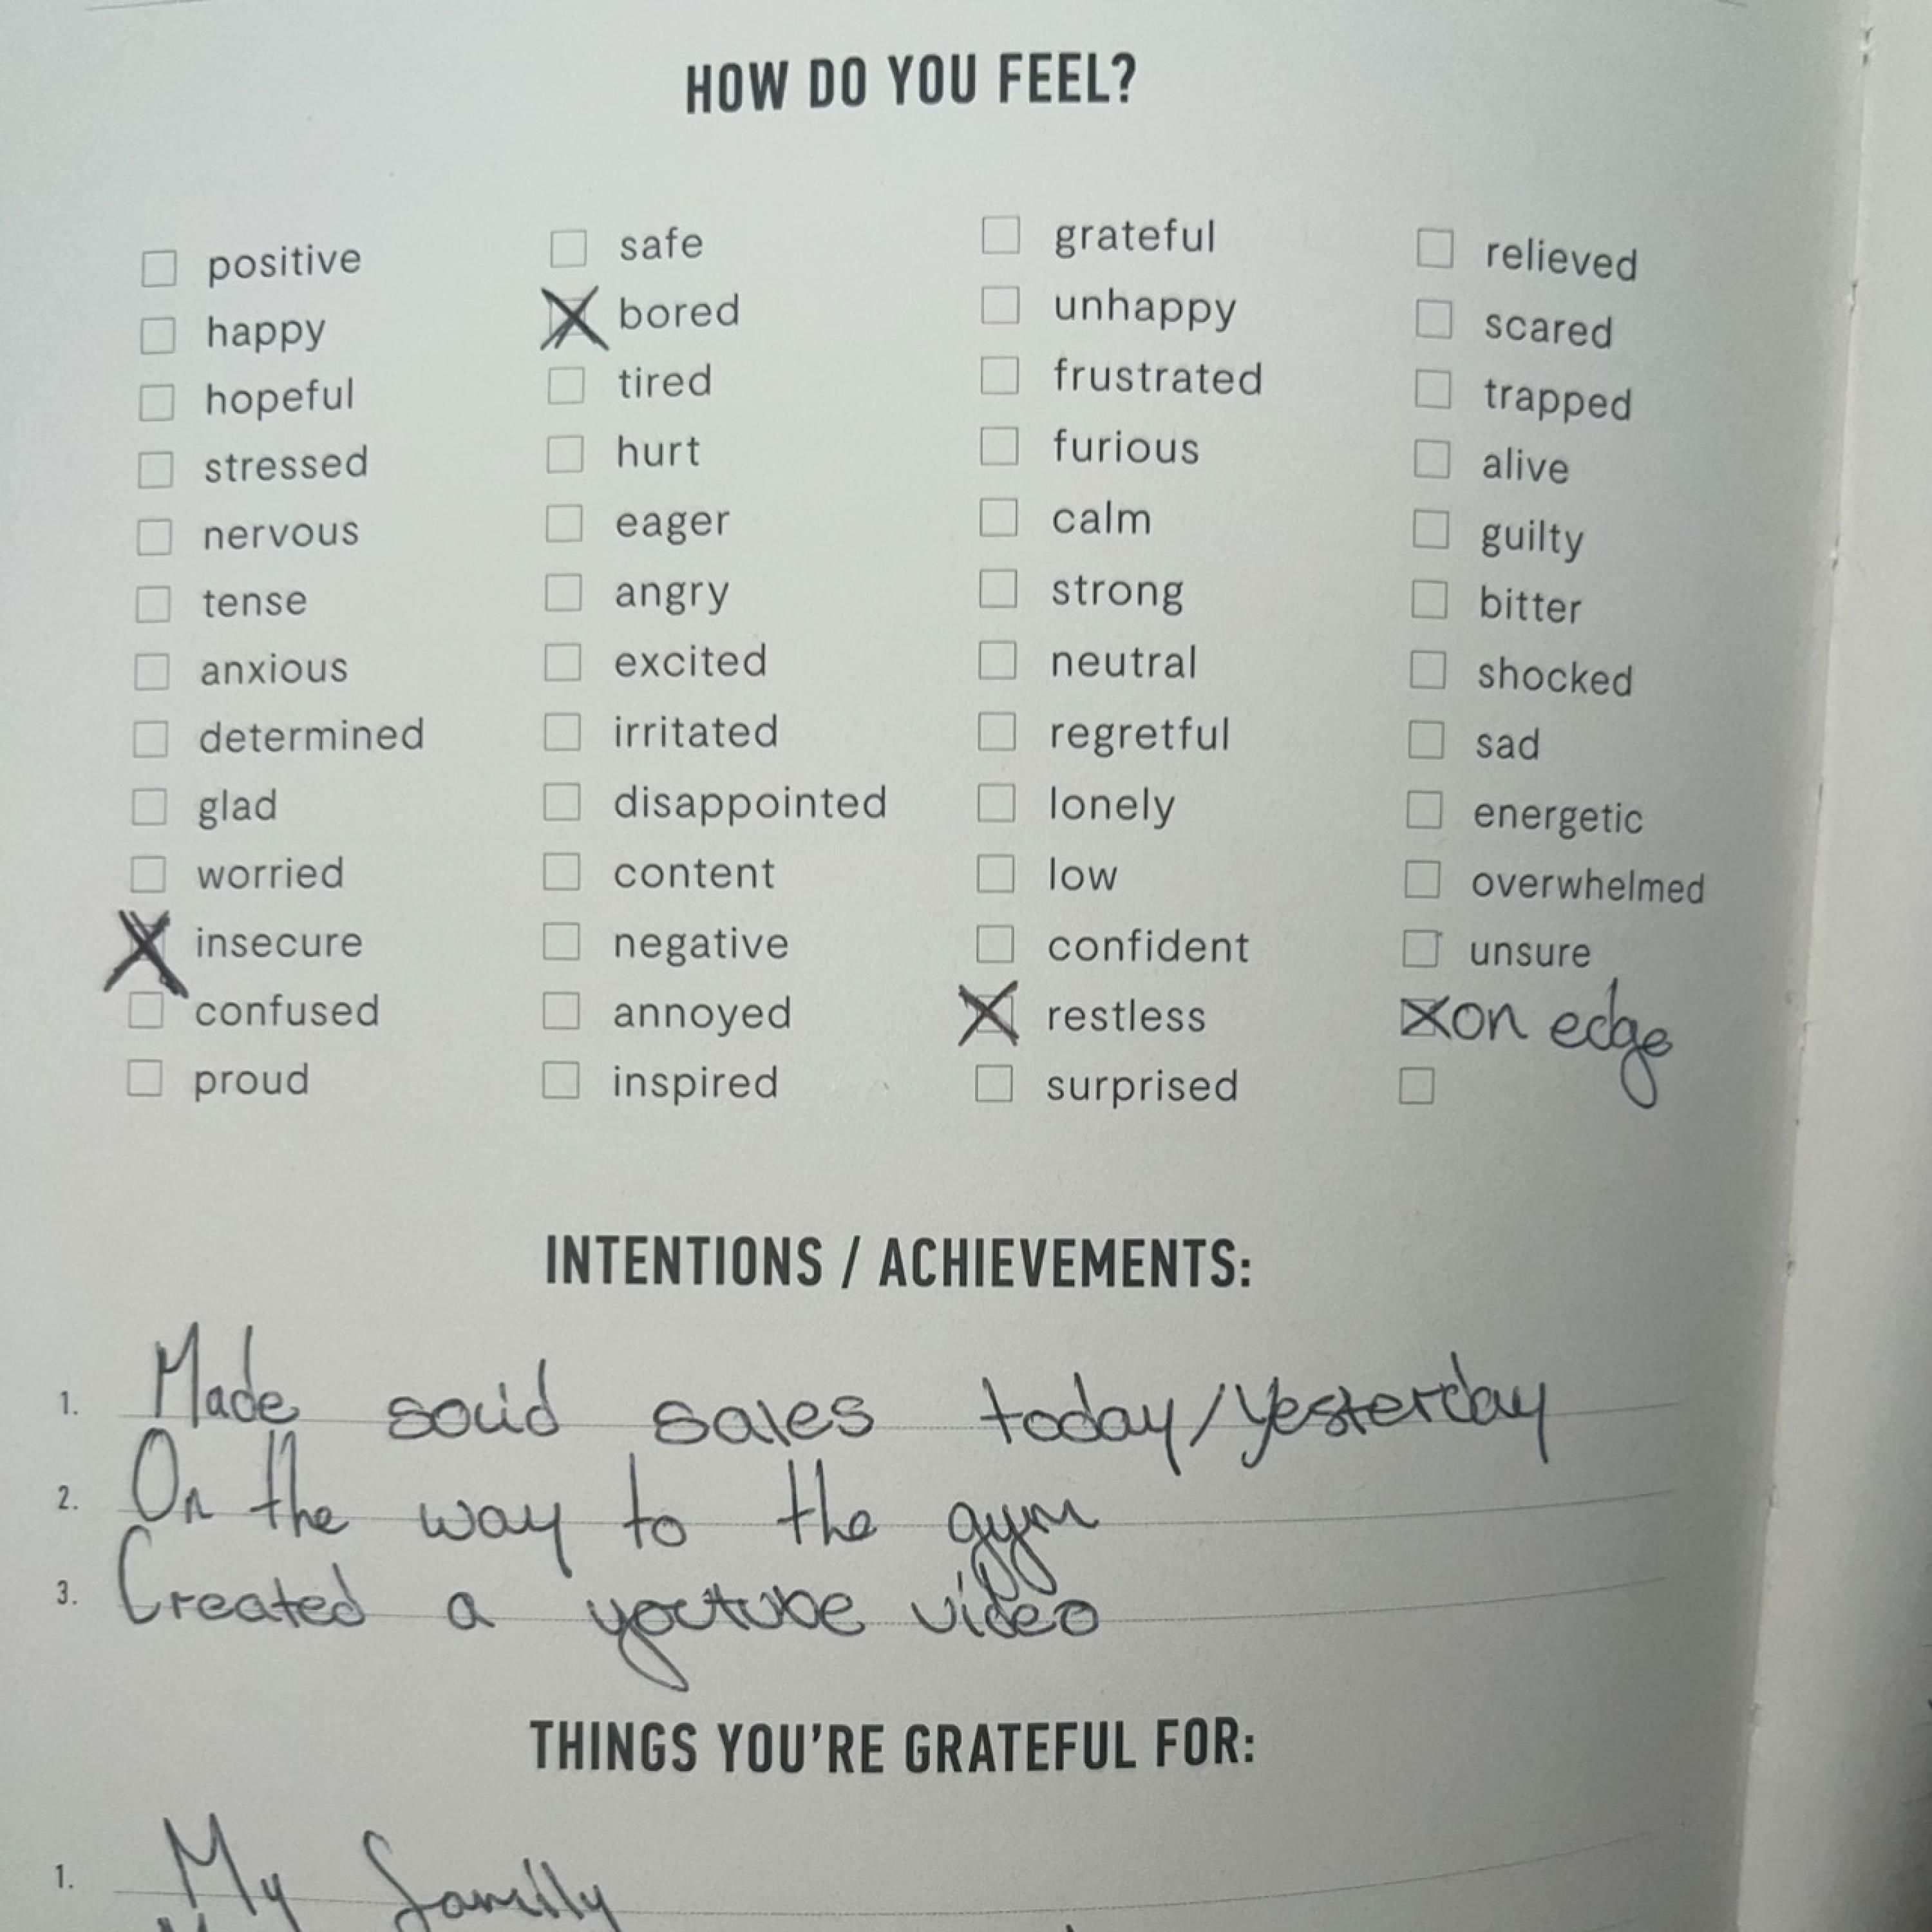 HOW DO YOU FEEL?
positive
happy
hopeful
stressed
nervous
tense
anxious
determined
glad
worried
insecure
confused
proud
safe
bored
tired
hurt
eager
angry
excited
irritated
disappointed
content
negative
annoyed
inspired
grateful
unhappy
frustrated
furious
calm
strong
neutral
regretful
lonely
low
confident
restless
surprised
relieved
scared
trapped
alive
guilty
bitter
shocked
sad
energetic
overwhelmed
unsure
on edge
INTENTIONS / ACHIEVEMENTS:
1. Made solid sales today/yesterday
2. On the way to the gym
3. Created a youtube video
THINGS YOU'RE GRATEFUL FOR:
1. My family